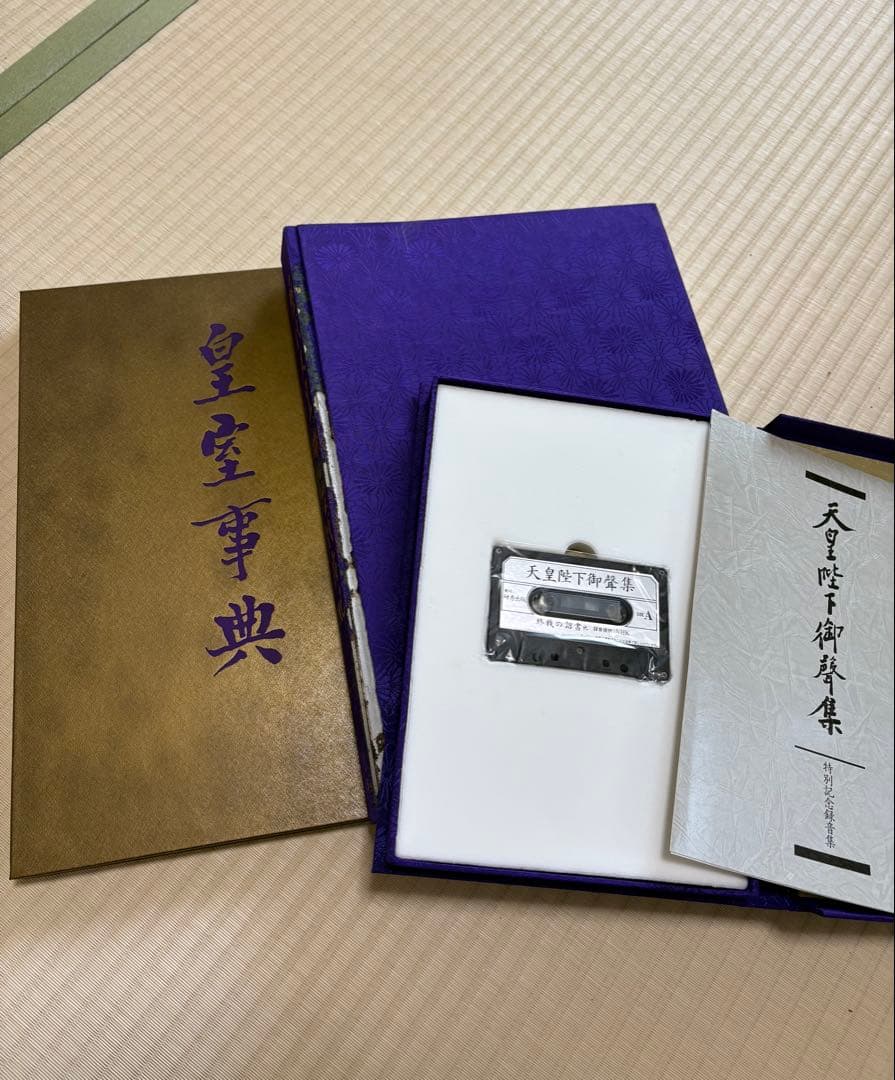 皇室事典
天皇陛下御聲集
A
終戦の詔書 他 録音提供:NHK
天皇陛下御聲集
特別記念録音集